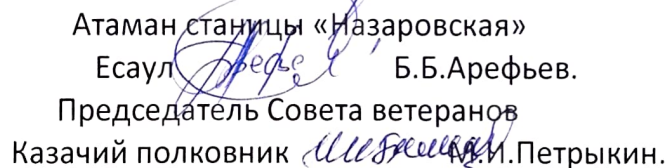 Атаман станицы «Назаровская»
Есаул Б.Б.Арефьев.
Председатель Совета ветеранов
Казачий полковник М.И.Петрыкин.